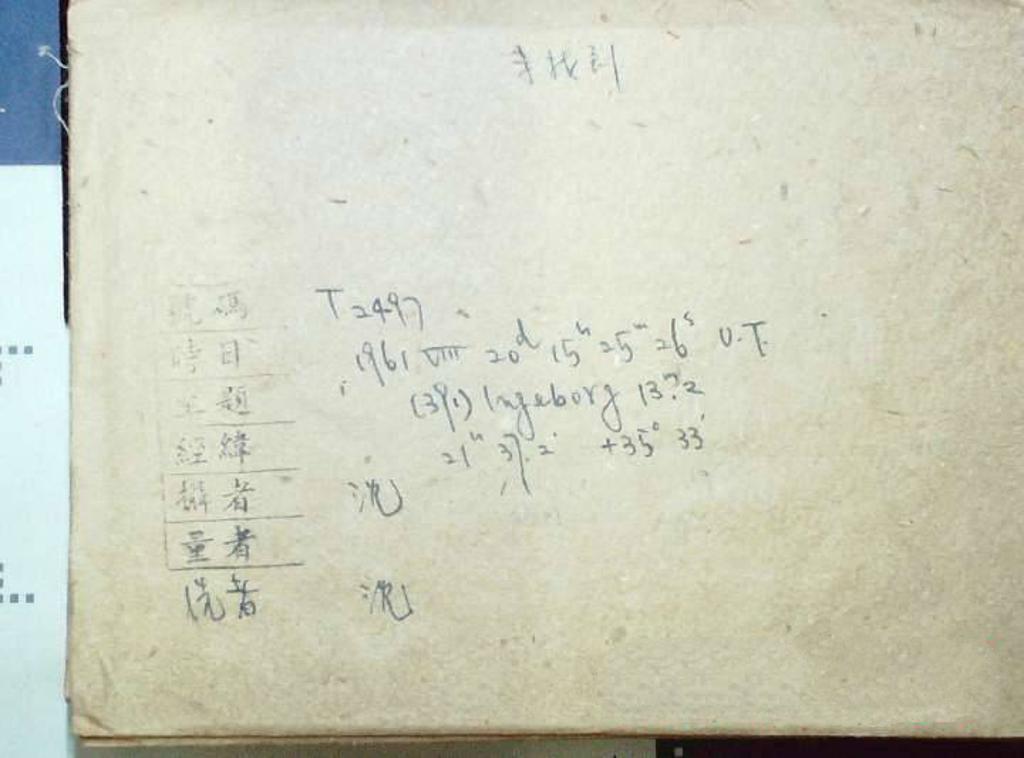 未找到
號碼 T2497
時日 1961 VIII 20ᵈ 15ʰ 25ᵐ 26ˢ U.T.
主題 (391) Ingeborg 13ᵐ.2
經緯 21ʰ 37.2' +35° 33'
攝者 沈
量者
洗者 沈